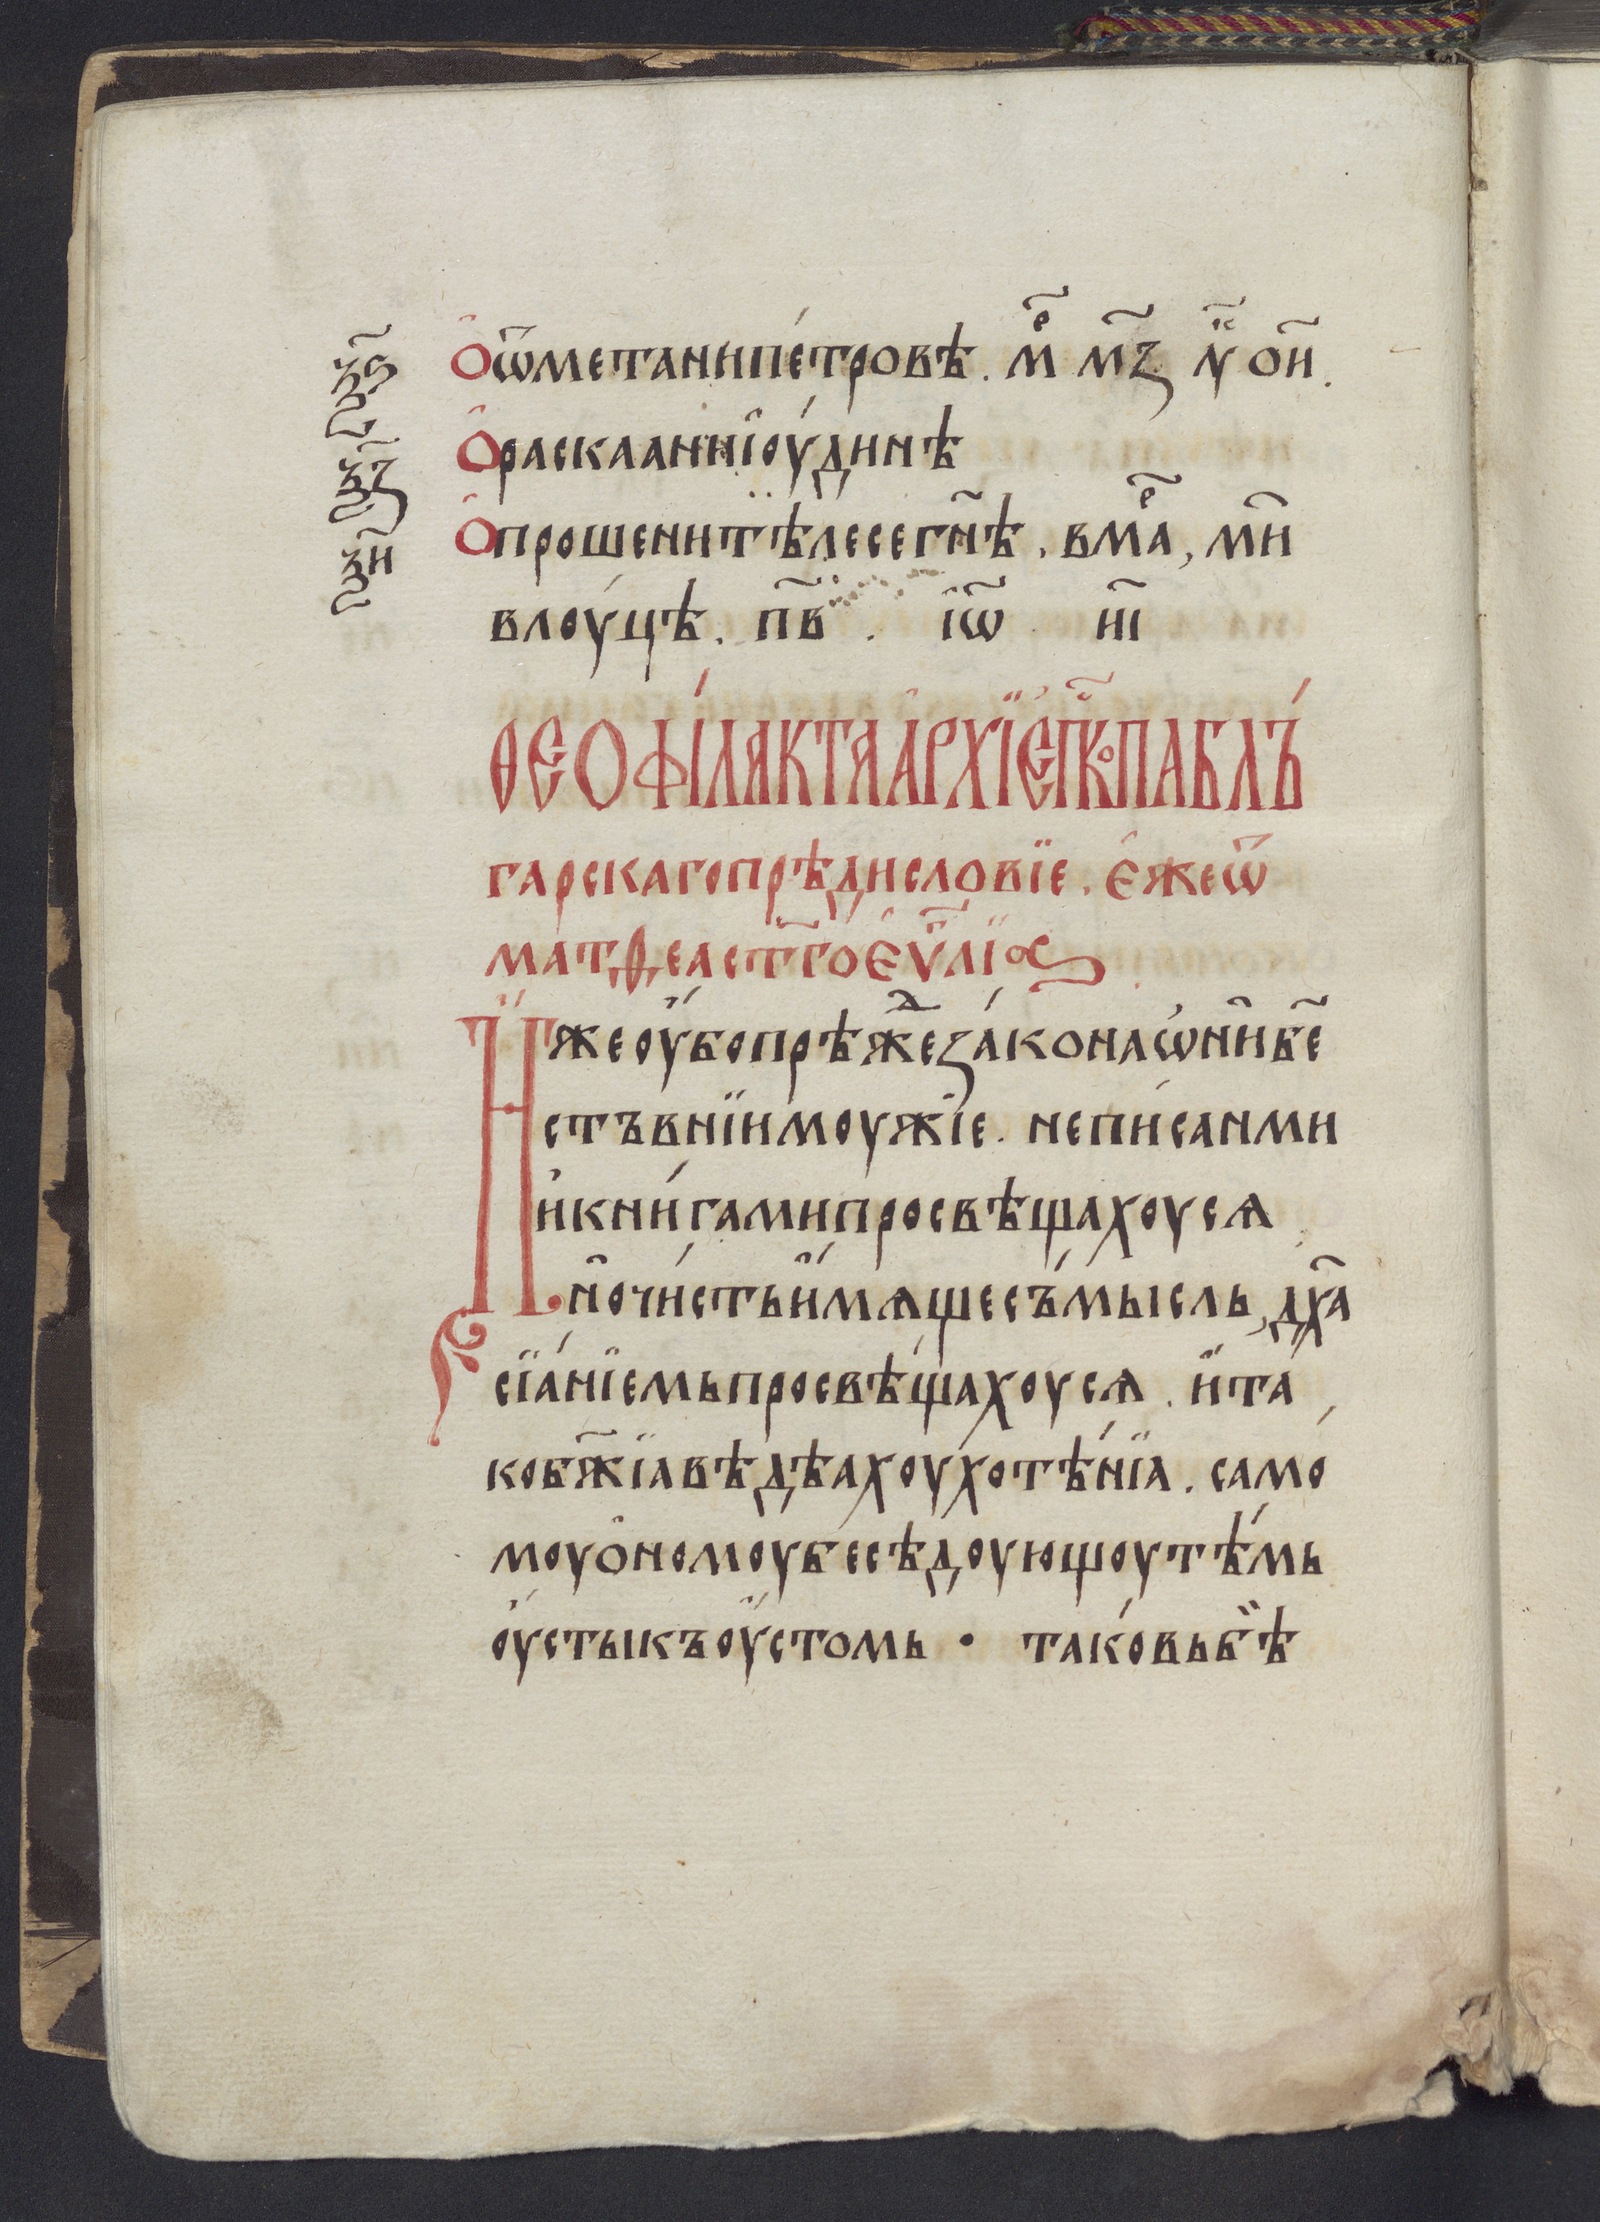 ѯ҃ѕ О ѿметани петровѣ . мр҃ м҃з лꙋ҃ о҃и .
ѯ҃з О раскаанні оу́динѣ
ѯ҃и О прошени тѣлесе гн҃ѣ . в мр҃а , м҃и
в лоуцѣ . п҃в . іѡ҃ н҃і
ѲЕОФІЛАКТА АРХЇЕПКⷭ҇ПА БЛЪ
гарскаго прѣдисловїе . еже ѿ
матѳеа ст҃го еѵ҃лїа
Иже оубо прѣжⷣе закона ѡни б҃е
стъвнїи моужїе . не писанми
и книгами просвѣщахоусѧ
но чисть имѧще съмысль , дх҃а
сїанїемь просвѣщахоусѧ . и та
ко бж҃їа вѣдѣахоу хотѣнїа . само
моу ономоу бесѣдоующоу тѣмь
оусты къ оустомь · таковь бѣ